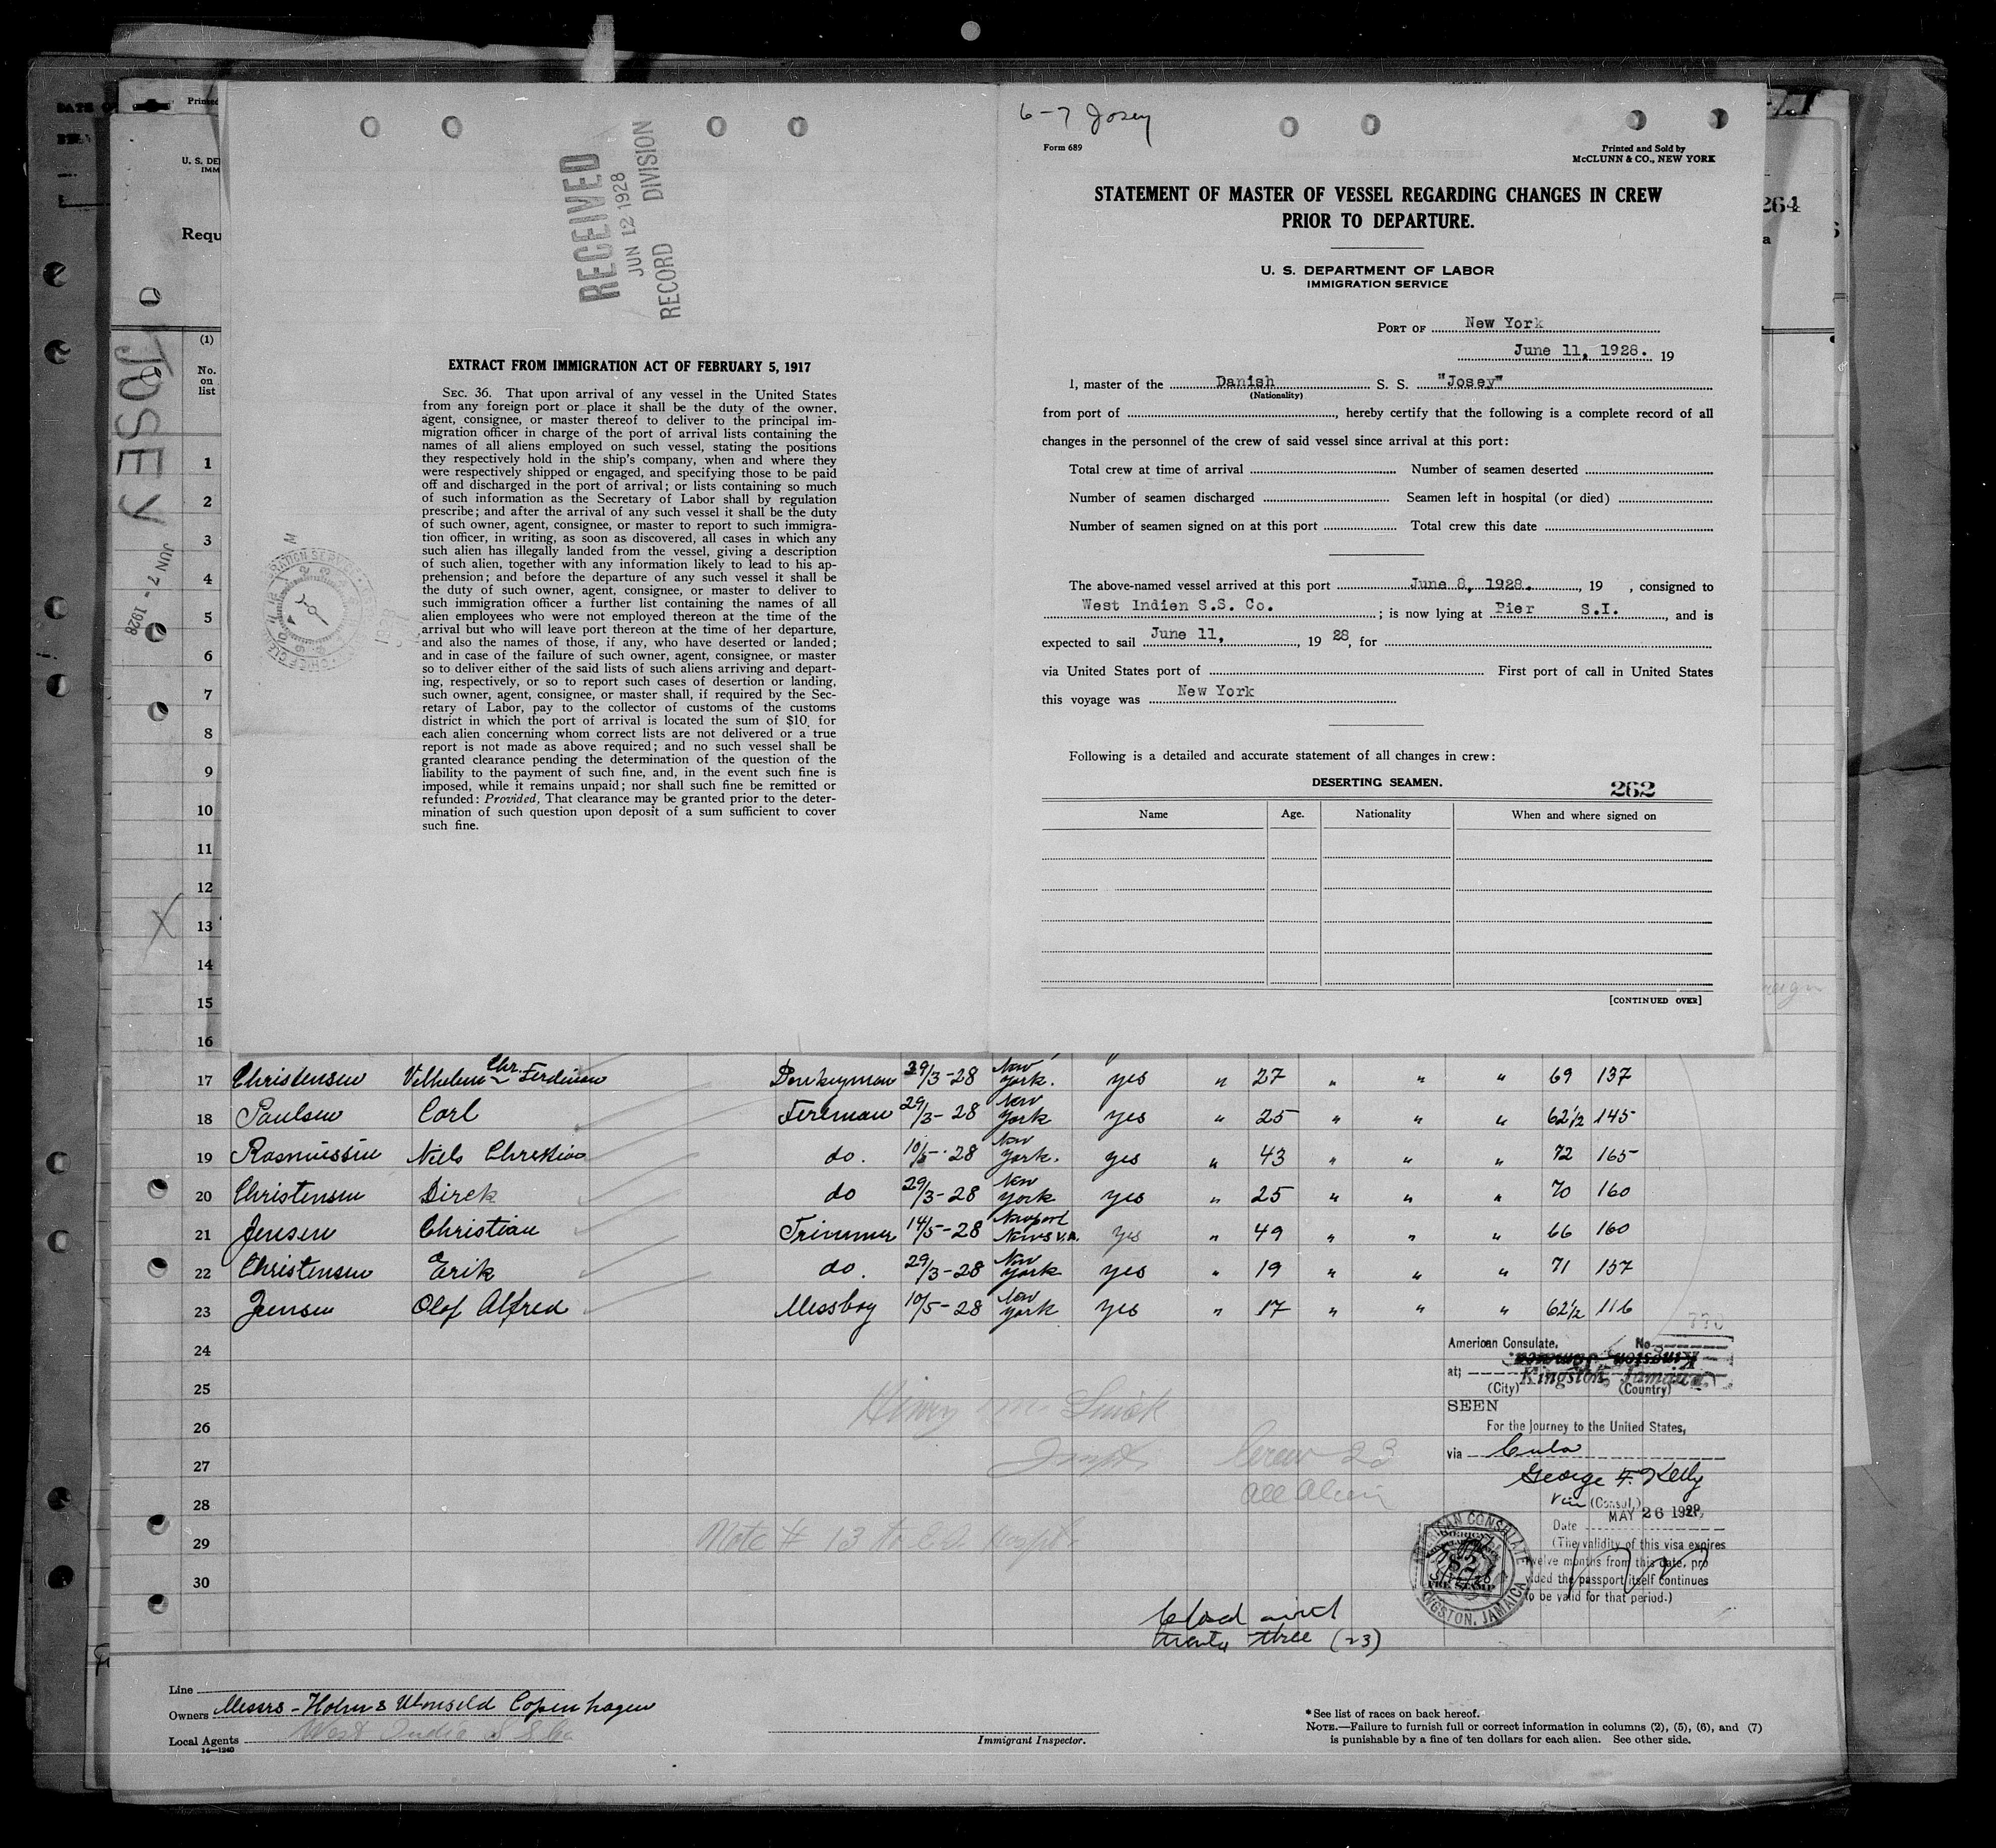 6-7 Josey
Form 689
Printed and Sold by
McCLUNN & CO., NEW YORK
STATEMENT OF MASTER OF VESSEL REGARDING CHANGES IN CREW
PRIOR TO DEPARTURE.
U. S. DEPARTMENT OF LABOR
IMMIGRATION SERVICE
PORT OF New York
June 11, 1928. 19
I, master of the Danish S. S. "Josey"
(Nationality)
from port of , hereby certify that the following is a complete record of all
changes in the personnel of the crew of said vessel since arrival at this port:
Total crew at time of arrival Number of seamen deserted
Number of seamen discharged Seamen left in hospital (or died)
Number of seamen signed on at this port Total crew this date
The above-named vessel arrived at this port June 8, 1928. , 19 , consigned to
West Indien S.S. Co. ; is now lying at Pier S.I. , and is
expected to sail June 11, , 19 28, for
via United States port of First port of call in United States
this voyage was New York
Following is a detailed and accurate statement of all changes in crew:
DESERTING SEAMEN. 262
Name Age. Nationality When and where signed on
[CONTINUED OVER]
RECEIVED
JUN 12 1928
RECORD DIVISION
EXTRACT FROM IMMIGRATION ACT OF FEBRUARY 5, 1917
SEC. 36. That upon arrival of any vessel in the United States
from any foreign port or place it shall be the duty of the owner,
agent, consignee, or master thereof to deliver to the principal im-
migration officer in charge of the port of arrival lists containing the
names of all aliens employed on such vessel, stating the positions
they respectively hold in the ship's company, when and where they
were respectively shipped or engaged, and specifying those to be paid
off and discharged in the port of arrival; or lists containing so much
of such information as the Secretary of Labor shall by regulation
prescribe; and after the arrival of any such vessel it shall be the duty
of such owner, agent, consignee, or master to report to such immigra-
tion officer, in writing, as soon as discovered, all cases in which any
such alien has illegally landed from the vessel, giving a description
of such alien, together with any information likely to lead to his ap-
prehension; and before the departure of any such vessel it shall be
the duty of such owner, agent, consignee, or master to deliver to
such immigration officer a further list containing the names of all
alien employees who were not employed thereon at the time of the
arrival but who will leave port thereon at the time of her departure,
and also the names of those, if any, who have deserted or landed;
and in case of the failure of such owner, agent, consignee, or master
so to deliver either of the said lists of such aliens arriving and depart-
ing, respectively, or so to report such cases of desertion or landing,
such owner, agent, consignee, or master shall, if required by the Sec-
retary of Labor, pay to the collector of customs of the customs
district in which the port of arrival is located the sum of $10 for
each alien concerning whom correct lists are not delivered or a true
report is not made as above required; and no such vessel shall be
granted clearance pending the determination of the question of the
liability to the payment of such fine, and, in the event such fine is
imposed, while it remains unpaid; nor shall such fine be remitted or
refunded: Provided, That clearance may be granted prior to the deter-
mination of such question upon deposit of a sum sufficient to cover
such fine.
Printed
U. S. DE
IMM
Requ
264
JOSEY
JUN 7 - 1928
(1)
No.
on
list
1
2
3
4
5
6
7
8
9
10
11
12
13
14
15
16
17 Christensen Vilhelm Chr. Ferdinan Donkeyman 29/3-28 New York. yes " 27 " " " 69 137
18 Paulsen Carl Fireman 29/3-28 New York yes " 25 " " " 62 1/2 145
19 Rasmussen Niels Christian do. 10/5-28 New York. yes " 43 " " " 72 165
20 Christensen Dirck do 29/3-28 New York yes " 25 " " " 70 160
21 Jensen Christian Trimmer 14/5-28 Newport News V.A. yes " 49 " " " 66 160
22 Christensen Erik do. 29/3-28 New York yes " 19 " " " 71 157
23 Jensen Olof Alfred Messboy 10/5-28 New York yes " 17 " " " 62 1/2 116
24
25
26
27
28
29
30
American Consulate, No
at; Kingston, Jamaica
(City) (Country)
SEEN
For the journey to the United States,
via Cuba
George F. Kelly
Vice (Consul.)
Date MAY 26 1928
(The validity of this visa expires
twelve months from this date, pro
vided the passport itself continues
to be valid for that period.)
AMERICAN CONSULATE
KINGSTON, JAMAICA
$2
FEE STAMP
Crew 23
all alien
Note # 13 to E.I. Hospt.
Closed with
twenty three (23)
Line
Owners Messrs - Holm & Wonsild Copenhagen
Local Agents West India S S Co
14-1240
Immigrant Inspector.
* See list of races on back hereof.
NOTE.—Failure to furnish full or correct information in columns (2), (5), (6), and (7)
is punishable by a fine of ten dollars for each alien. See other side.